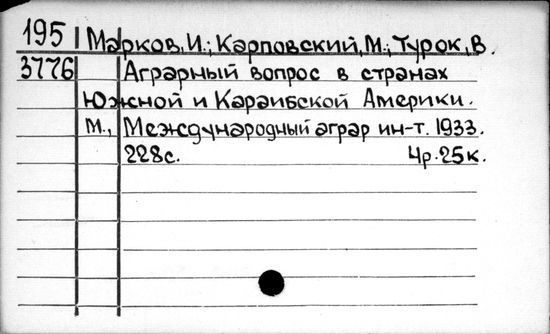 195 Марков, И.; Карповский, М.; Турок, В.
3776 Аграрный вопрос в странах
Южной и Караибской Америки.
М., Международный аграр ин-т. 1933.
228с. 4р.25к.